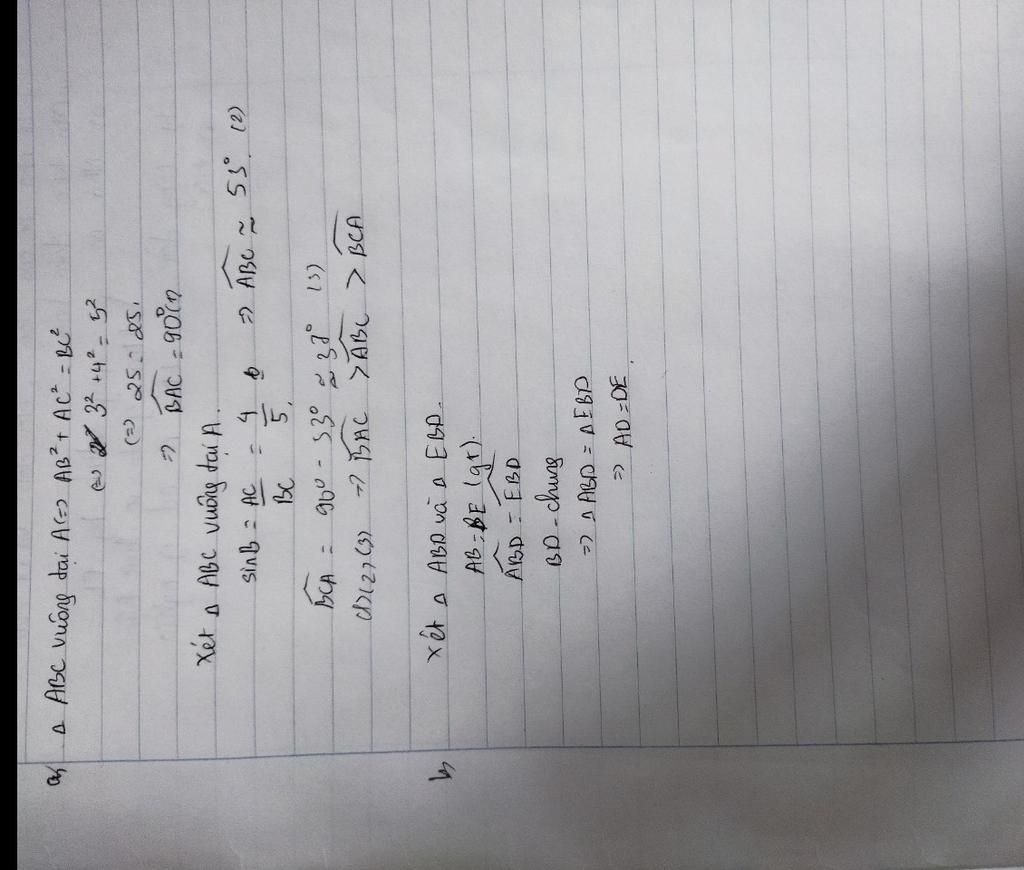 a) Δ ABC vuông tại A <=> AB² + AC² = BC²
<=> 3² + 4² = 5²
<=> 25 = 25.
=> BAC = 90° (1)
Xét Δ ABC vuông tại A.
sinB = AC/BC = 4/5 => ABC ≈ 53° (2)
BCA = 90° - 53° ≈ 37° (3)
(1)(2)(3) => BAC > ABC > BCA
b) Xét Δ ABD và Δ EBD.
AB = BE (gt).
ABD = EBD
BD - chung
=> Δ ABD = Δ EBD
=> AD = DE.